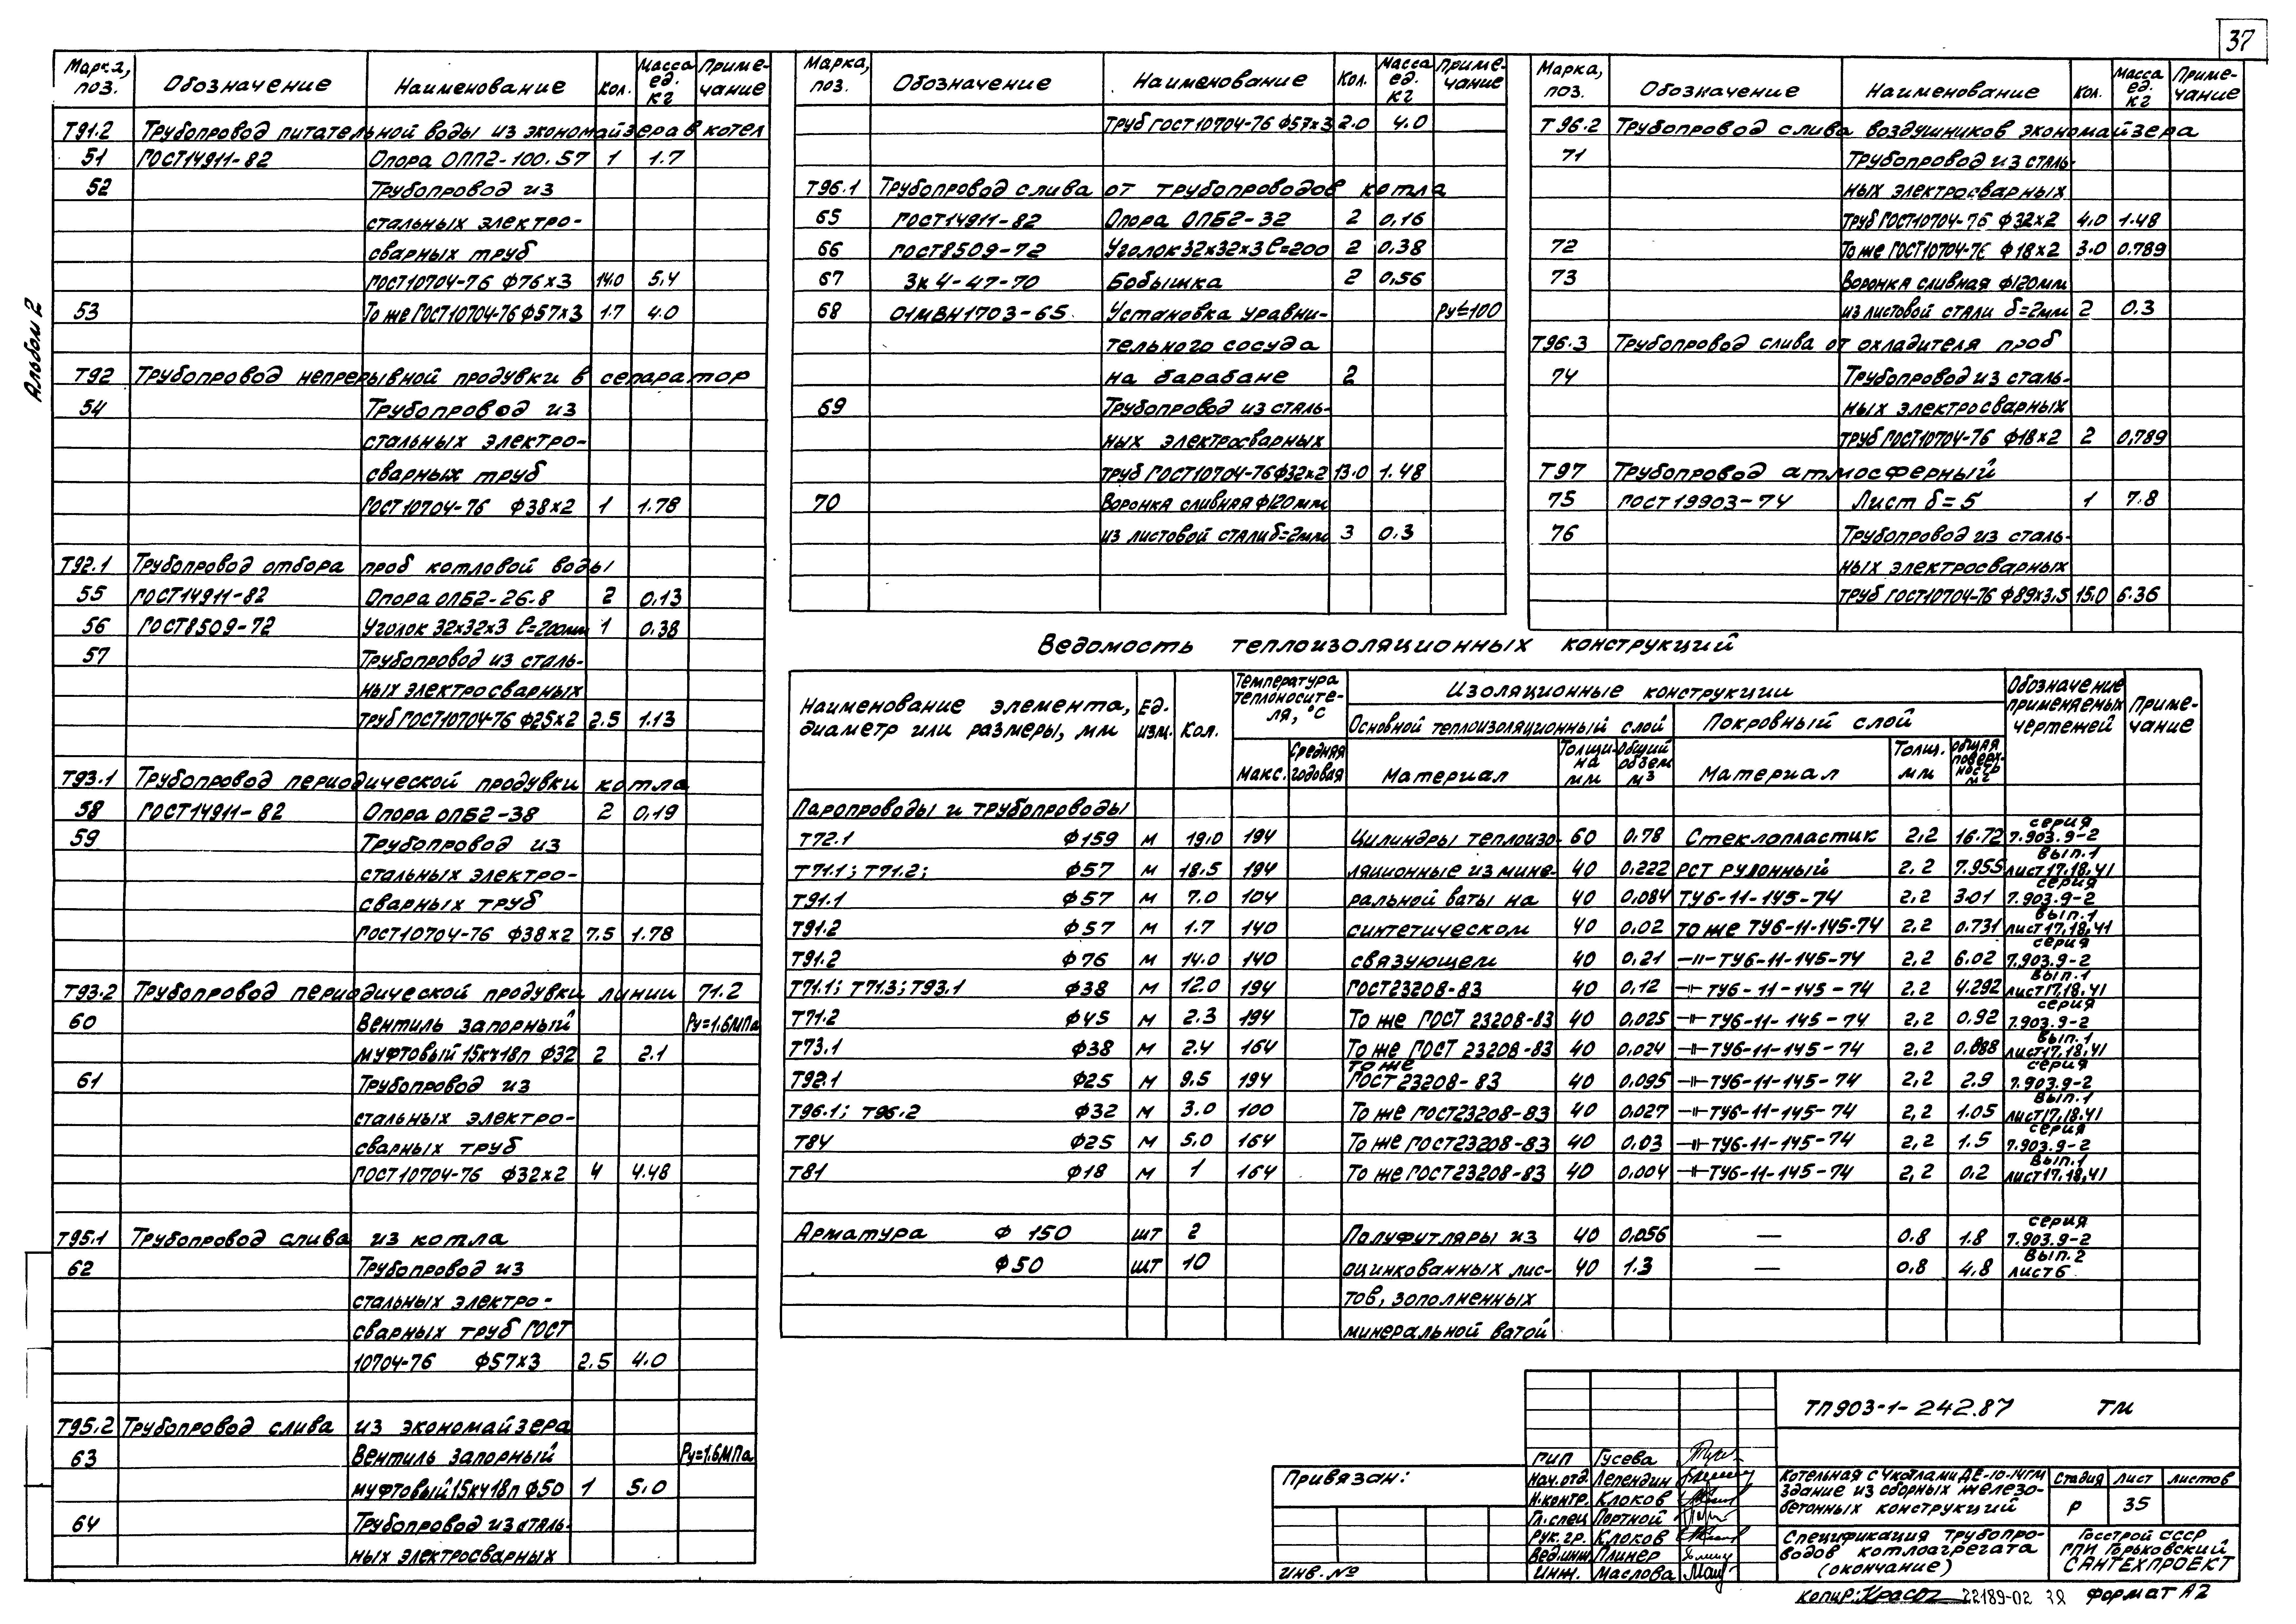 37
Альбом 2
Марка, поз. Обозначение Наименование Кол. Масса ед. кг Примечание
Т91.2 Трубопровод питательной воды из экономайзера в котел
51 ГОСТ14911-82 Опора ОПП2-100.57 1 1.7
52 Трубопровод из
стальных электро-
сварных труб
ГОСТ10704-76 Ф76х3 14.0 5,4
53 То же ГОСТ10704-76 Ф57х3 1.7 4.0
Т92 Трубопровод непрерывной продувки в сепаратор
54 Трубопровод из
стальных электро-
сварных труб
ГОСТ10704-76 Ф38×2 1 1.78
Т92.1 Трубопровод отбора проб котловой воды
55 ГОСТ14911-82 Опора ОПБ2-26-8 2 0,13
56 ГОСТ8509-72 Уголок 32х32х3 ℓ=200мм 1 0,38
57 Трубопровод из сталь-
ных электросварных
труб ГОСТ10704-76 Ф25×2 2.5 1.13
Т93.1 Трубопровод периодической продувки котла
58 ГОСТ14911-82 Опора ОПБ2-38 2 0,19
59 Трубопровод из
стальных электро-
сварных труб
ГОСТ10704-76 Ф38×2 7.5 1.78
Т93.2 Трубопровод периодической продувки линии 71.2
60 Вентиль запорный Ру=1.6МПа
муфтовый 15кч18п Ф32 2 2.1
61 Трубопровод из
стальных электро-
сварных труб
ГОСТ10704-76 Ф32×2 4 4.48
Т95.1 Трубопровод слива из котла
62 Трубопровод из
стальных электро-
сварных труб ГОСТ
10704-76 Ф57×3 2.5 4.0
Т95.2 Трубопровод слива из экономайзера
63 Вентиль запорный Ру=1.6МПа
муфтовый 15кч18п Ф50 1 5.0
64 Трубопровод из сталь-
ных электросварных
Марка, поз. Обозначение Наименование Кол. Масса ед. кг Примечание
труб ГОСТ10704-76 Ф57×3 2.0 4.0
Т96.1 Трубопровод слива от трубопроводов котла
65 ГОСТ14911-82 Опора ОПБ2-32 2 0,16
66 ГОСТ8509-72 Уголок 32х32х3 ℓ=200 2 0.38
67 3к 4-47-70 Бобышка 2 0,56
68 01МВН1703-65 Установка уравни- Ру≤100
тельного сосуда
на барабане 2
69 Трубопровод из сталь-
ных электросварных
труб ГОСТ10704-76 Ф32×2 13.0 1.48
70 Воронка сливная ф120мм
из листовой стали δ=2мм 3 0.3
Марка, поз. Обозначение Наименование Кол. Масса ед. кг Примечание
Т96.2 Трубопровод слива воздушников экономайзера
71 Трубопровод из сталь-
ных электросварных
труб ГОСТ10704-76 Ф32×2 4.0 1.48
72 То же ГОСТ10704-76 Ф18×2 3.0 0.789
73 Воронка сливная ф120мм
из листовой стали δ=2мм 2 0.3
Т96.3 Трубопровод слива от охладителя проб
74 Трубопровод из сталь-
ных электросварных
труб ГОСТ10704-76 Ф18×2 2 0,789
Т97 Трубопровод атмосферный
75 ГОСТ19903-74 Лист δ=5 1 7.8
76 Трубопровод из сталь-
ных электросварных
труб ГОСТ10704-76 Ф89×3,5 15.0 6.36
Ведомость теплоизоляционных конструкций
Наименование элемента, диаметр или размеры, мм Ед. изм. Кол. Температура теплоносителя, °С Изоляционные конструкции Обозначение применяемых чертежей Примечание
Основной теплоизоляционный слой Покровный слой
Макс. Средняя годовая Материал Толщина мм Общий объем м3 Материал Толщ. мм Общая поверхность м2
Паропроводы и трубопроводы
Т72.1 Ф159 м 19.0 194 Цилиндры теплоизо- 60 0.78 Стеклопластик 2,2 16.72 серия 7.903.9-2
Т71.1; Т71.2; Ф57 м 18.5 194 ляционные из мине- 40 0.222 РСТ рулонный 2,2 7.955 Вып.1 лист17,18,41
Т91.1 Ф57 м 7.0 104 ральной ваты на 40 0,084 ТУ6-11-145-74 2,2 3.01 серия 7.903.9-2
Т91.2 Ф57 м 1.7 140 синтетическом 40 0.02 то же ТУ6-11-145-74 2,2 0.731 Вып.1 лист17,18,41
Т91.2 Ф76 м 14.0 140 связующем 40 0,21 -"- ТУ6-11-145-74 2,2 6.02 серия 7.903.9-2
Т71.1; Т71.3; Т93.1 Ф38 м 12.0 194 ГОСТ23208-83 40 0,12 -"- ТУ6-11-145-74 2,2 4.292 Вып.1 лист17,18,41
Т71.2 Ф45 м 2.3 194 То же ГОСТ 23208-83 40 0.025 -"- ТУ6-11-145-74 2,2 0,92 серия 7.903.9-2
Т73.1 Ф38 м 2.4 164 То же ГОСТ 23208-83 40 0.024 -"- ТУ6-11-145-74 2,2 0.888 Вып.1 лист17,18,41
Т92.1 Ф25 м 9.5 194 То же ГОСТ 23208-83 40 0,095 -"- ТУ6-11-145-74 2,2 2.9 серия 7.903.9-2
Т96.1; Т96.2 Ф32 м 3.0 100 То же ГОСТ23208-83 40 0.027 -"- ТУ6-11-145-74 2,2 1.05 Вып.1 лист17,18,41
Т84 Ф25 м 5.0 164 То же ГОСТ23208-83 40 0.03 -"- ТУ6-11-145-74 2,2 1.5 серия 7.903.9-2
Т81 Ф18 м 1 164 То же ГОСТ23208-83 40 0.004 -"- ТУ6-11-145-74 2,2 0.2 Вып.1 лист17,18,41
Арматура Ф 150 шт 2 Полуфутляры из 40 0,056 — 0.8 1.8 серия 7.903.9-2
Ф50 шт 10 оцинкованных лис- 40 1.3 — 0,8 4,8 Вып.2 лист6
тов, зополненных
минеральной ватой
ТП903-1-242.87 ТМ
Привязан:
Инв. №
ГИП Гусева
Нач.отд. Лепендин
Н.контр. Клоков
Гл.спец Портной
Рук.гр. Клоков
Вед.инж Плинер
Инж. Маслова
Котельная с 4 котлами ДЕ-10-14ГМ
Здание из сборных железо-
бетонных конструкций
Стадия Лист Листов
Р 35
Спецификация трубопро-
водов котлоагрегата
(окончание)
Госстрой СССР
ГПИ Горьковский
САНТЕХПРОЕКТ
Копир: 22189-02 38 Формат А2